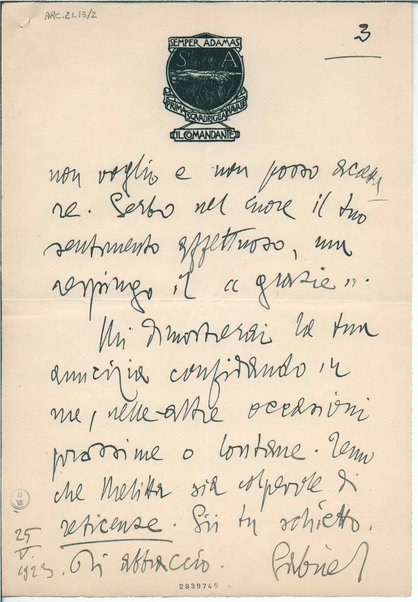 ARC.21.13/2
3
SEMPER ADAMAS
S A
PRIMA SQUADRIGLIA NAVALE
IL COMANDANTE
non voglio e non posso
re. Serbo nel cuore il tuo
sentimento affettuoso, ma
respingo il "grazie".
Mi dimostrerai la tua
amicizia confidando in
me, nelle altre occasioni
prossime o lontane. Temo
che Melitta sia colpevole di
reticenze. Sii tu schietto.
25
V.
1923. Ti abbraccio. Gabriel
2839749